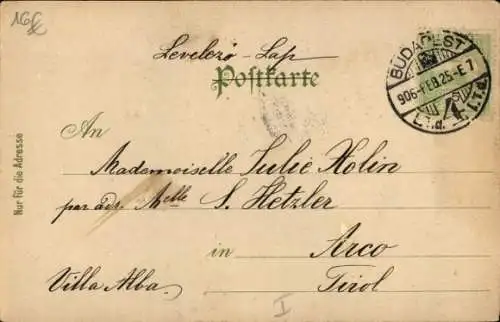 16
Levelező-Lap
Postkarte
BUDAPEST
906-FEB.25-E.7
4
I.T.d. I.T.d.
An
Mademoiselle Julie Holin
per adr. Melle S. Hetzler
in Arco
Villa Alba. Tirol
I
Nur für die Adresse